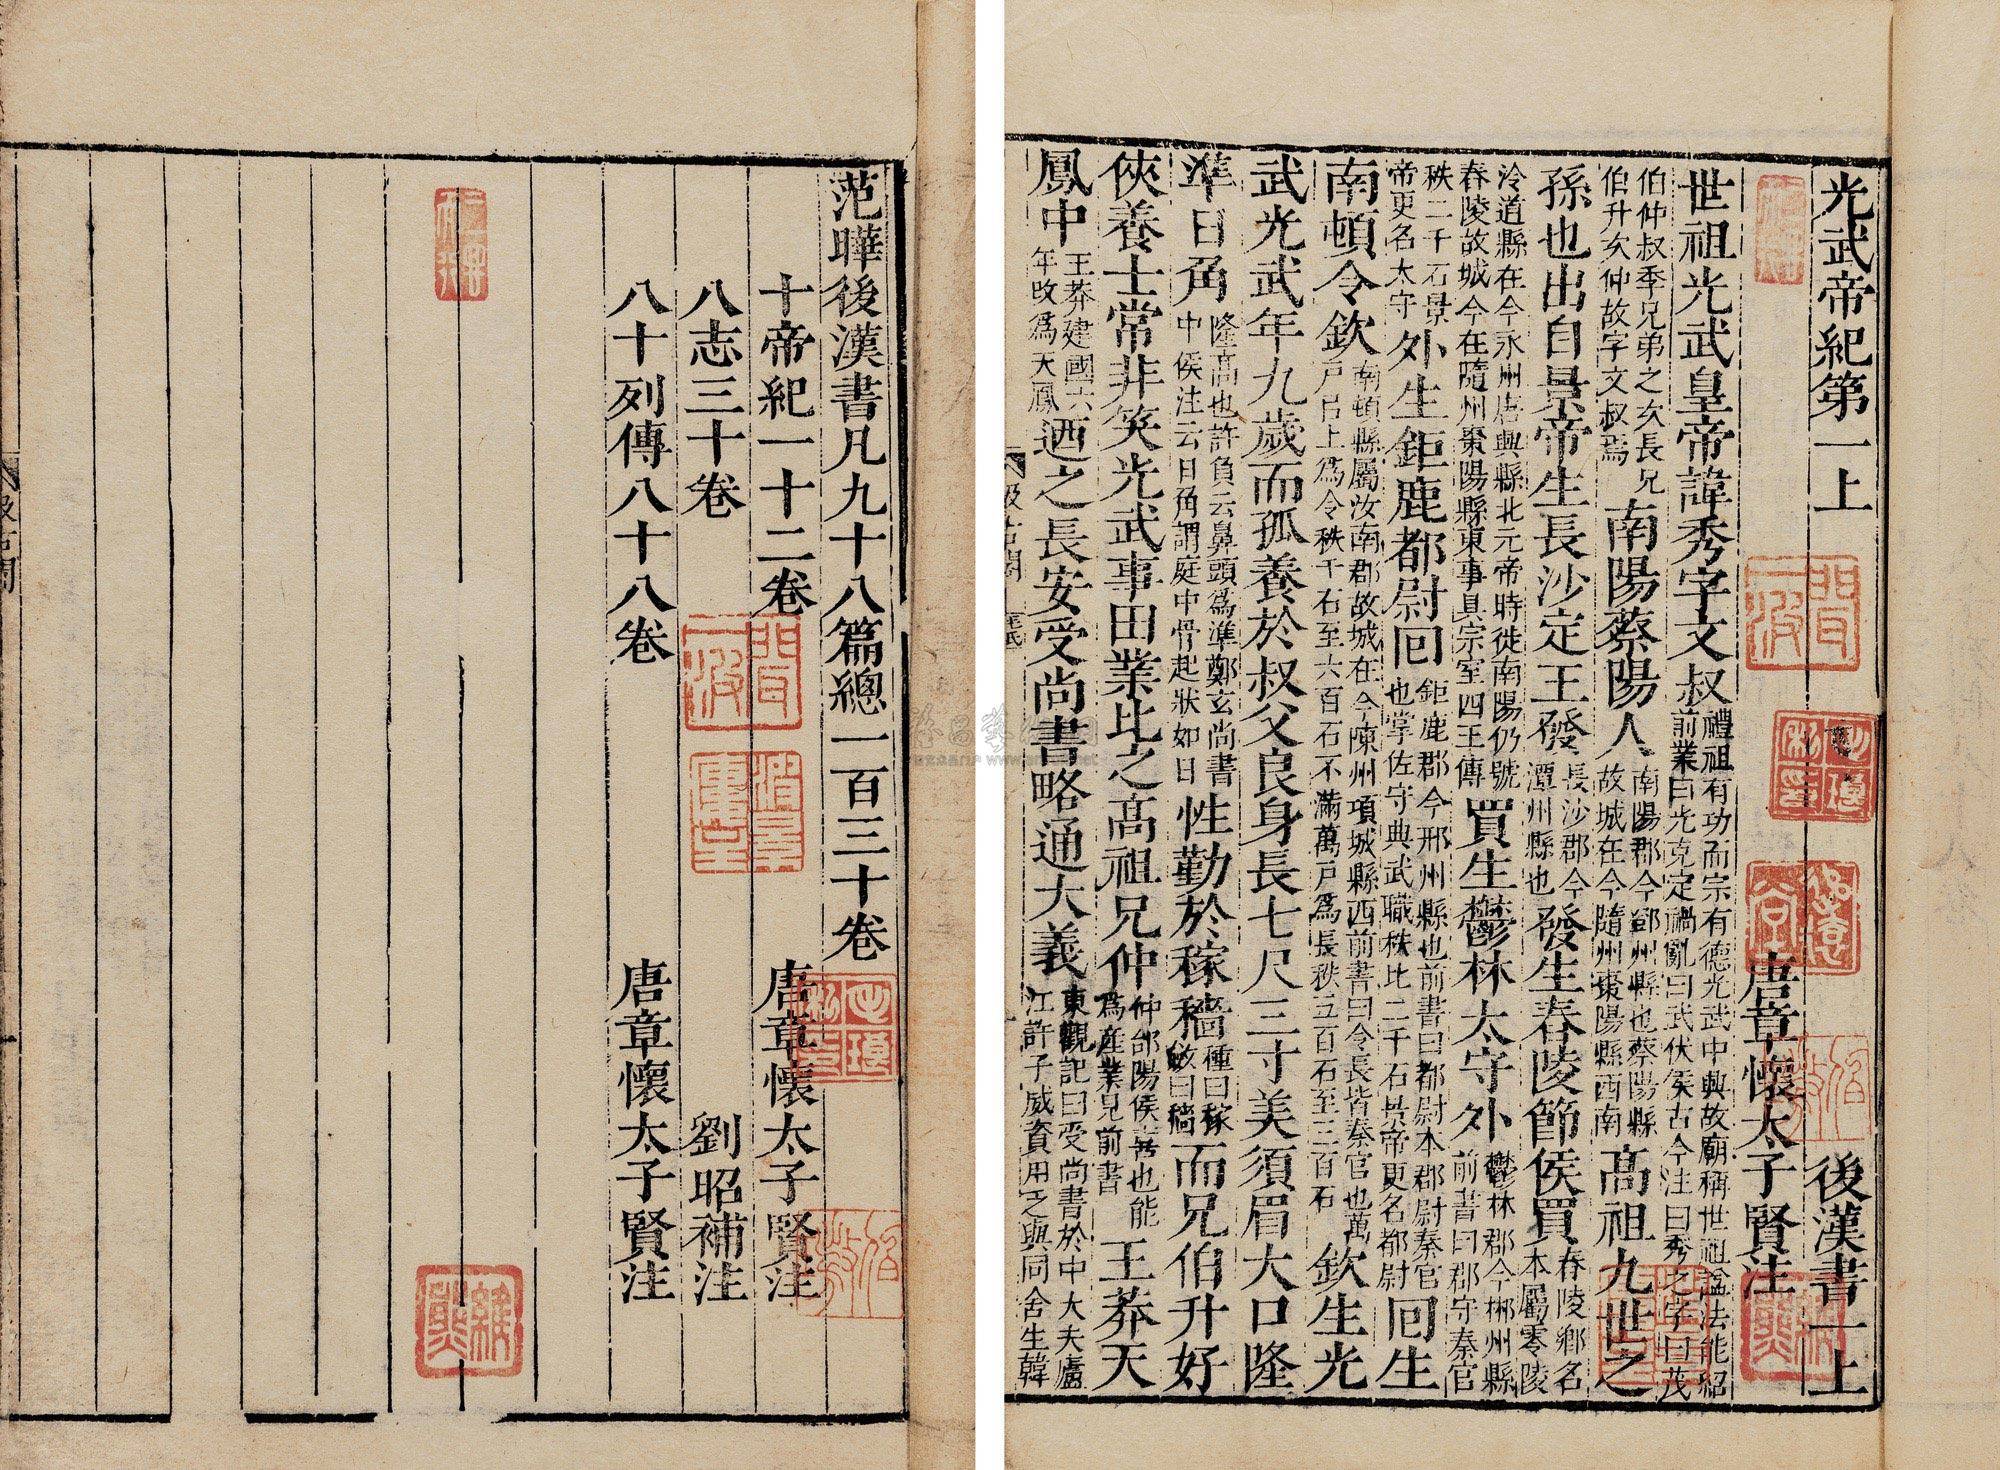 光武帝紀第一上 後漢書一上
唐章懷太子賢注
世祖光武皇帝諱秀字文叔禮祖有功而宗有德光武中興故廟稱世祖謚法能紹前業曰光克定禍亂曰武伏侯古今注曰秀之字曰茂
伯仲叔季兄弟之次長兄伯升次仲故字文叔焉南陽蔡陽人南陽郡今鄧州縣也蔡陽縣故城在今隨州棗陽縣西南高祖九世之
孫也出自景帝生長沙定王發長沙郡今潭州縣也發生舂陵節侯買舂陵鄉名本屬零陵
泠道縣在今永州唐興縣北元帝時徙南陽仍號舂陵故城今在隨州棗陽縣東事具宗室四王傳買生鬱林太守外鬱林郡今郴州縣前書曰郡守秦官
秩二千石景帝更名太守外生鉅鹿都尉囘鉅鹿郡今邢州縣也前書曰都尉本郡尉秦官也掌佐守典武職秩比二千石景帝更名都尉囘生
南頓令欽南頓縣屬汝南郡故城在今陳州項城縣西前書曰令長皆秦官也萬戶已上為令秩千石至六百石不滿萬戶為長秩五百石至三百石欽生光
武光武年九歲而孤養於叔父良身長七尺三寸美須眉大口隆
準日角隆高也許負云鼻頭為準鄭玄尚書中侯注云日角謂庭中骨起狀如日性勤於稼穡種曰稼斂曰穡而兄伯升好
俠養士常非笑光武事田業比之高祖兄仲仲郃陽侯喜也能為產業見前書王莽天
鳳中王莽建國六年改為天鳳迺之長安受尚書略通大義東觀記曰受尚書於中大夫廬江許子威資用乏與同舍生韓
范曄後漢書凡九十八篇總一百三十卷
十帝紀一十二卷 唐章懷太子賢注
八志三十卷 劉昭補注
八十列傳八十八卷 唐章懷太子賢注
汲古閣